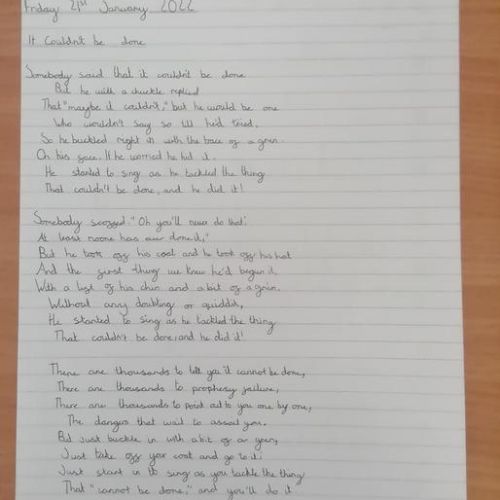 Friday 21st January 2022
It Couldn't be done
Somebody said that it couldn't be done
But he with a chuckle replied
That "maybe it couldn't," but he would be one
Who wouldn't say so till he'd tried.
So he buckled right in with the trace of a grin
On his face. If he worried he hid it.
He started to sing as he tackled the thing
That couldn't be done, and he did it!
Somebody scoffed: "Oh you'll never do that;
At least noone has ever done it;"
But he took off his coat and he took off his hat
And the first thing we knew he'd begun it.
With a lift of his chin and a bit of a grin,
Without any doubting or quiddit,
He started to sing as he tackled the thing
That couldn't be done, and he did it!
There are thousands to tell you it cannot be done,
There are thousands to prophesy failure,
There are thousands to point out to you one by one,
The dangers that wait to assail you.
But just buckle in with a bit of a grin,
Just take off your coat and go to it;
Just start in to sing as you tackle the thing
That "cannot be done," and you'll do it